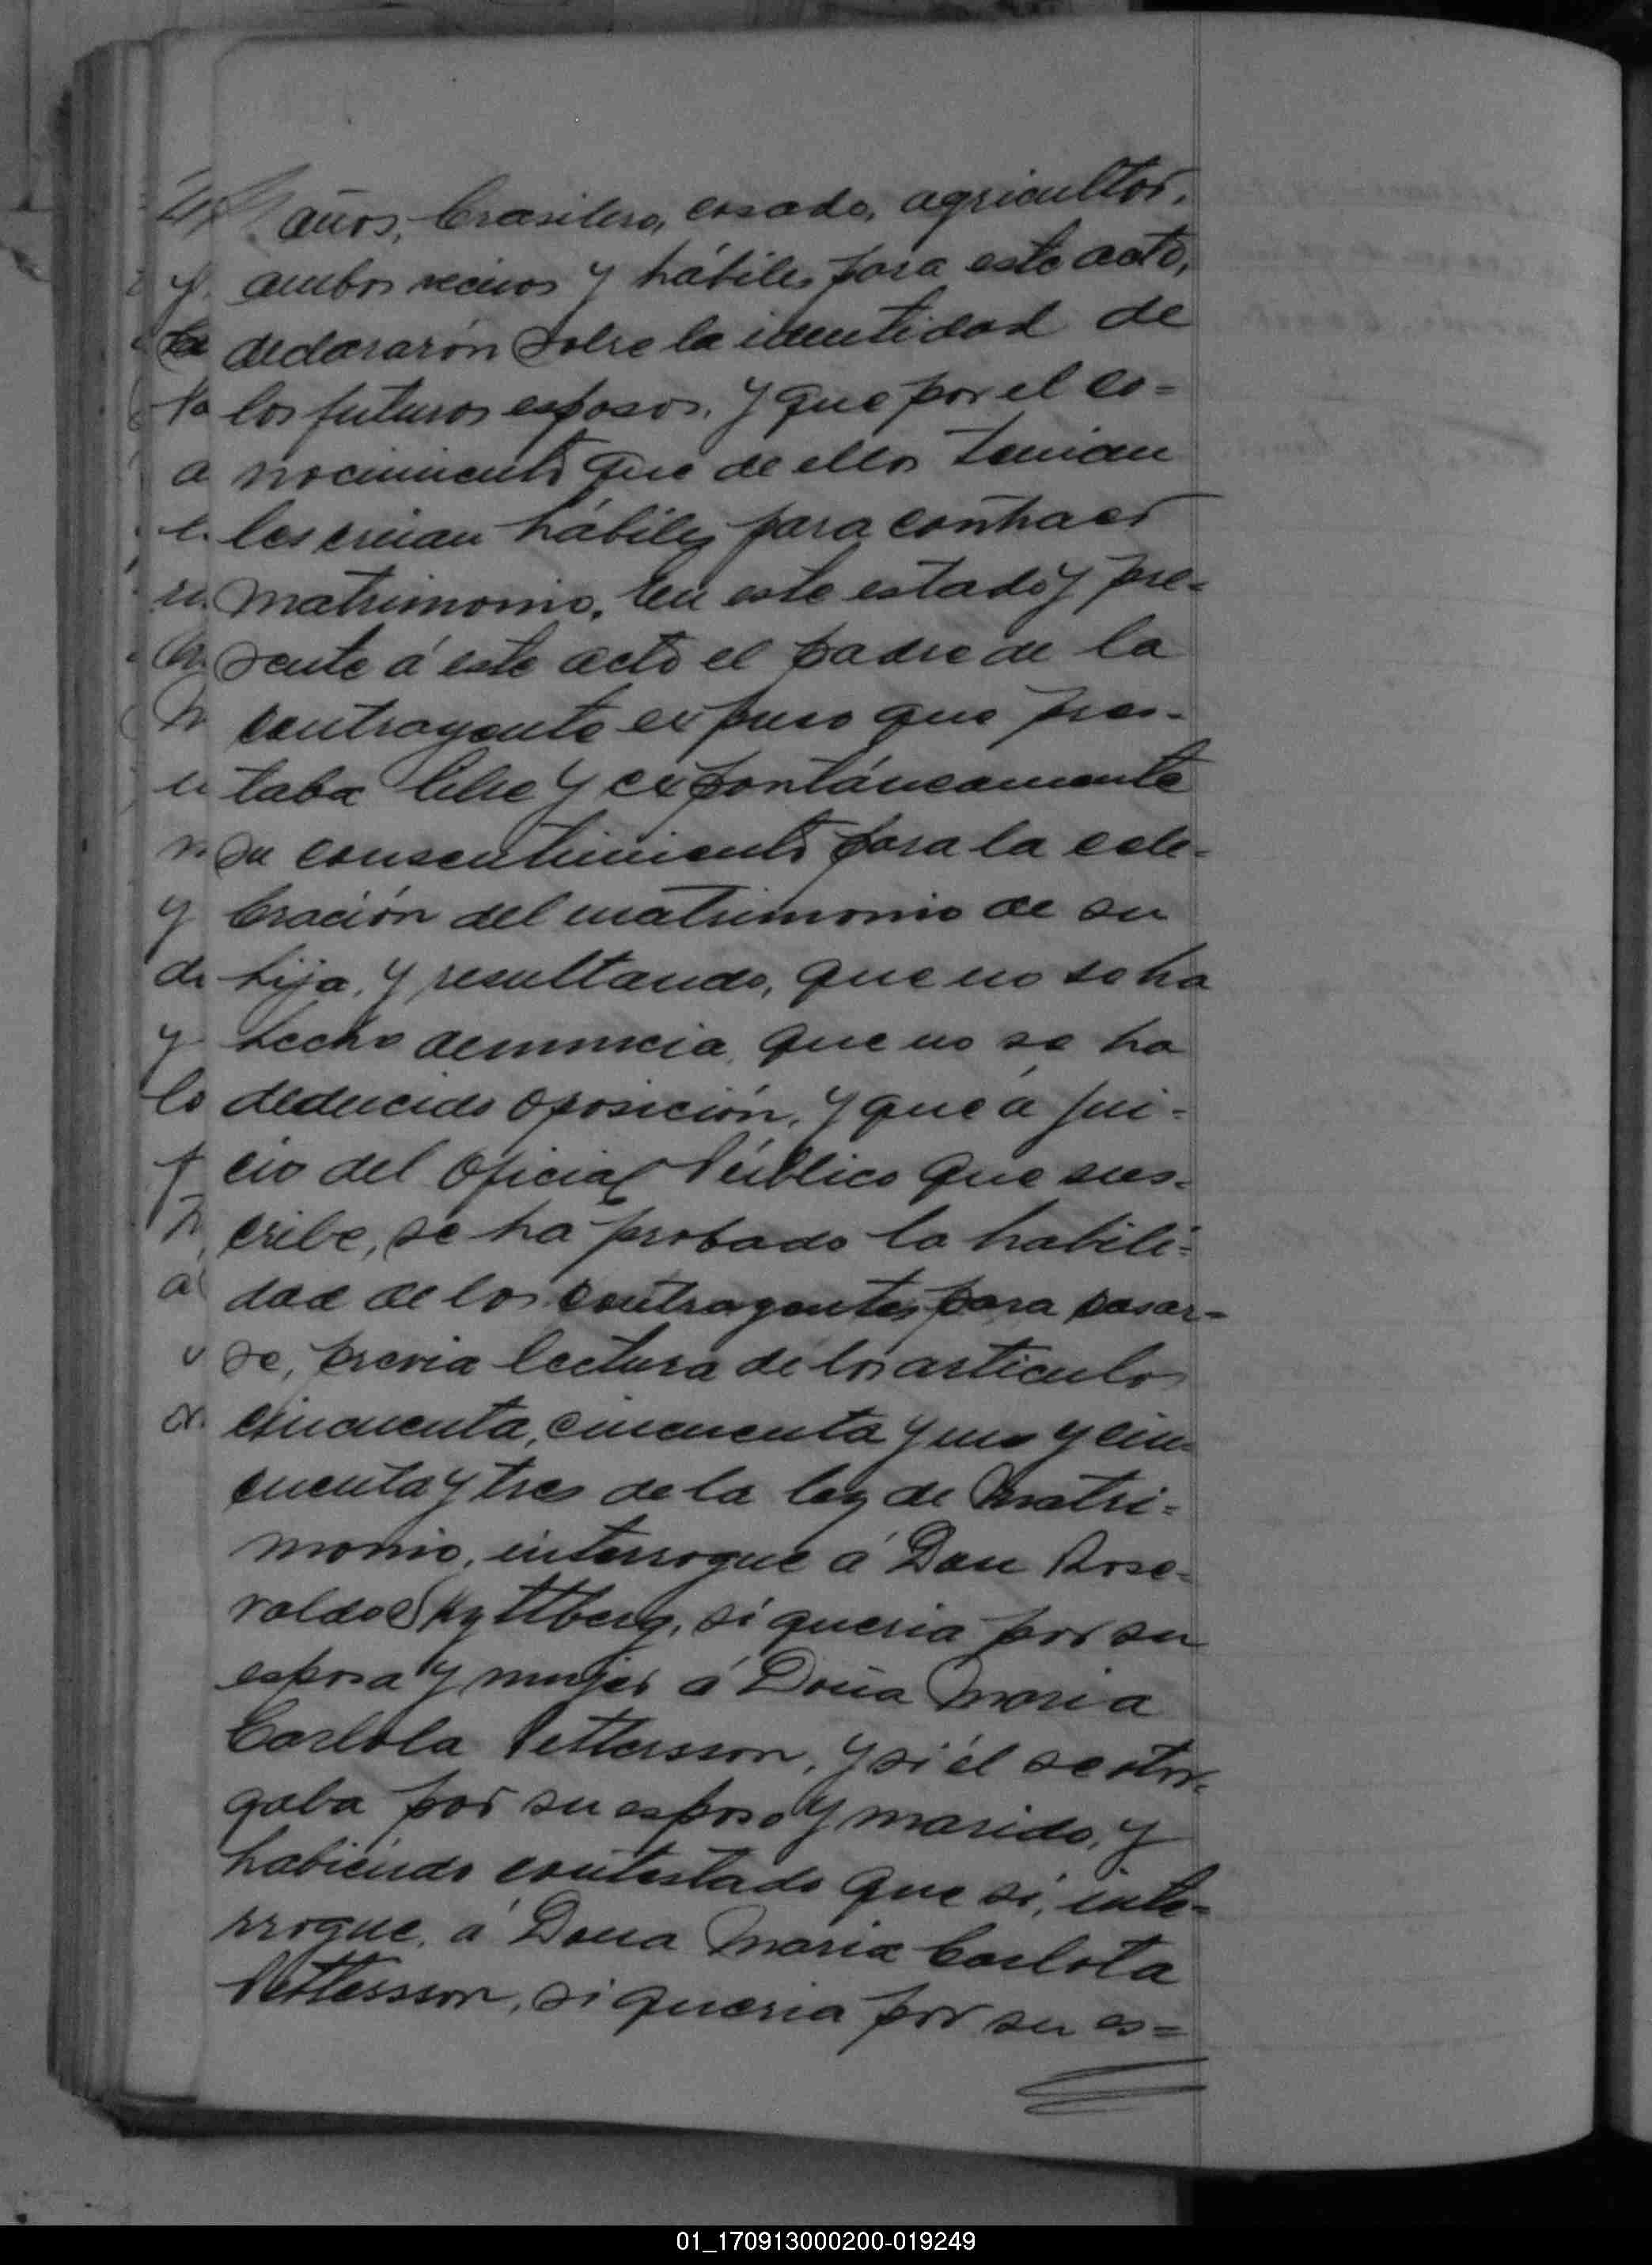 años, brasilero, casado, agricultor,
ambos vecinos y hábiles para este acto,
declararón sobre la identidad de
los futuros esposos, y que por el co=
nocimiento que de ellos tenian
les creian hábiles para contraer
matrimonio. En este estado y pre=
sente á este acto el padre de la
contrayente expuso que pres-
taba libre y expontáneamente
su consentimiento para la cele-
bración del matrimonio de su
hija, y resultando, que no se ha
hecho denuncia, que no se ha
deducido oposición, y que á jui=
cio del Oficial Público que sus-
cribe, se ha probado la habili=
dad de los contrayentes para casar=
se, previa lectura de los articulos
cincuenta, cincuenta y uno y cin-
cuenta y tres de la ley de Matri=
monio, interrogue á Don Rose=
valdo Skyttberg, si queria por su
esposa y mujer á Doña Maria
Carlota Pettersson, y si él se otor-
gaba por su esposo y marido, y
habiendo contestado que si, inte=
rrogue, á Doña Maria Carlota
Pettersson, si queria por su es=
01_170913000200-019249